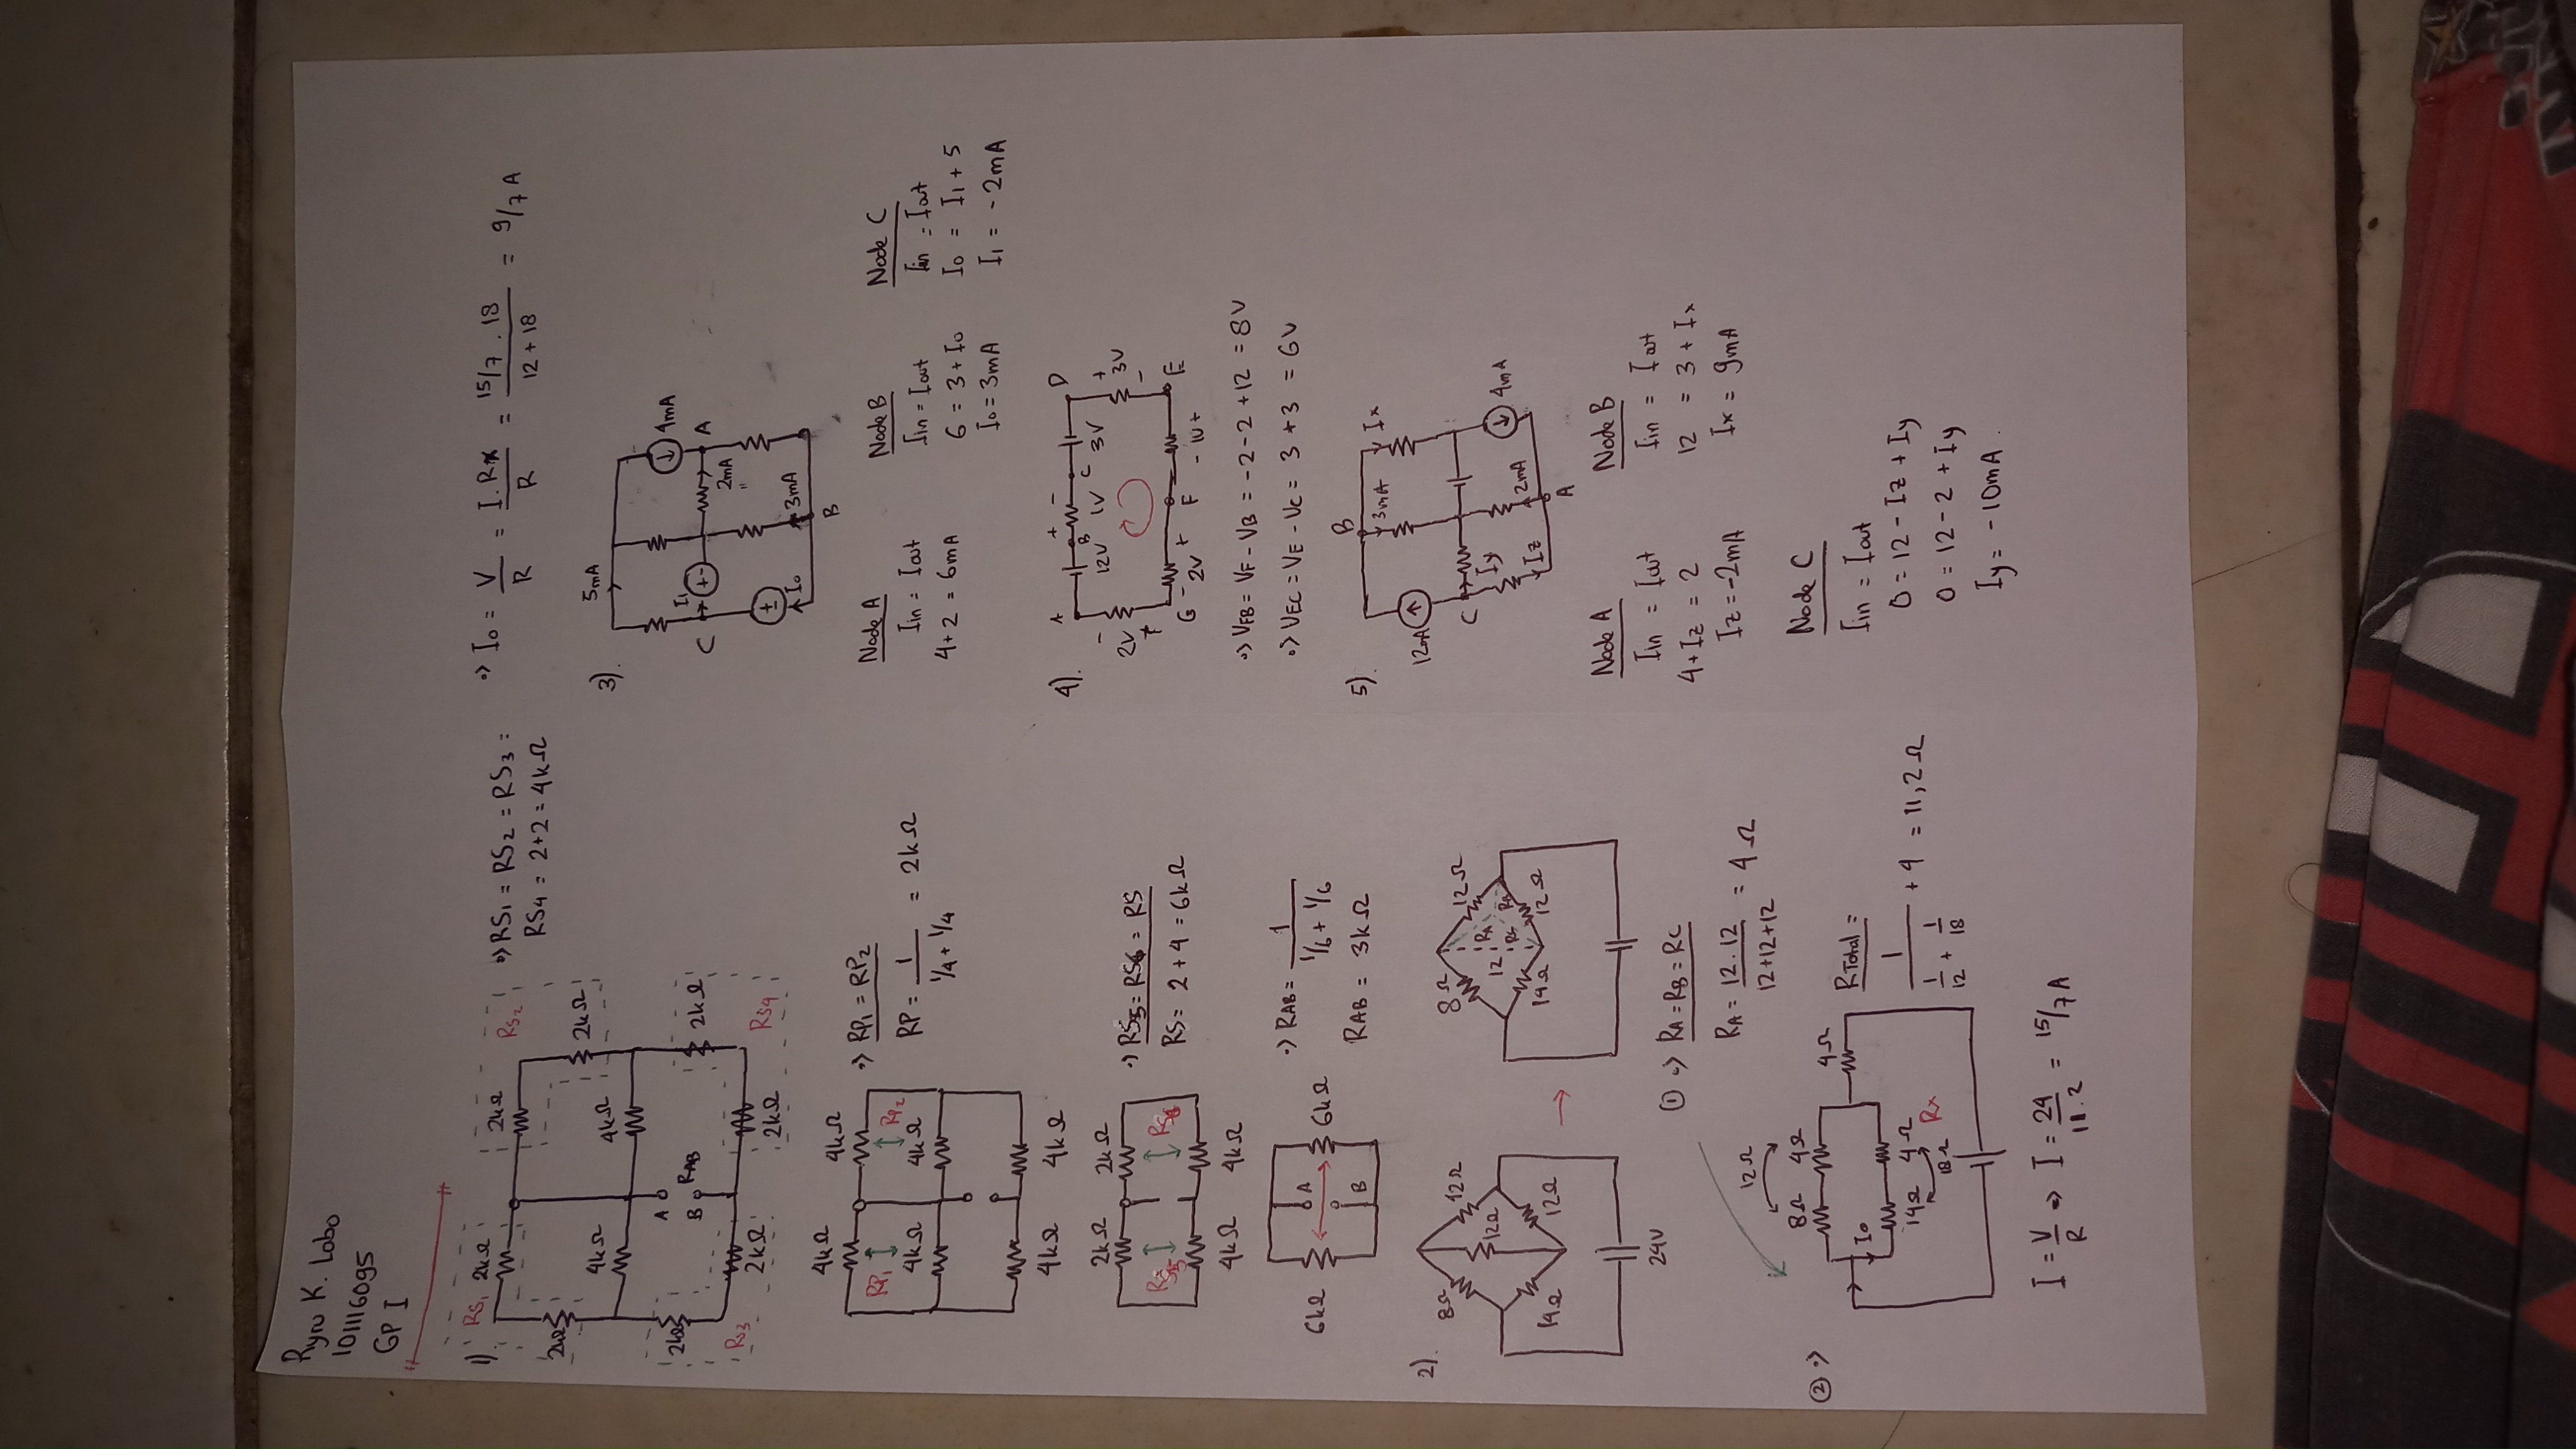 Ryru K. Lobo
101116095
GP I
1).
RS1
2kΩ
2kΩ
RS2
2kΩ
2kΩ
4kΩ
4kΩ
A
B
RAB
2kΩ
2kΩ
RS3
2kΩ
2kΩ
RS4
•> RS1 = RS2 = RS3 =
RS4 = 2+2 = 4kΩ
4kΩ
4kΩ
RP1
RP2
4kΩ
4kΩ
4kΩ
4kΩ
•> RP1 = RP2
RP = 1 / (1/4 + 1/4) = 2kΩ
2kΩ
2kΩ
RS5
RS6
4kΩ
4kΩ
•) RS5 = RS6 = RS
RS = 2 + 4 = 6kΩ
6kΩ
A
6kΩ
B
•) RAB = 1 / (1/6 + 1/6)
RAB = 3kΩ
2).
8Ω
12Ω
12Ω
14Ω
12Ω
24V
8Ω
12Ω
12
RA
RC
RB
14Ω
12Ω
① •> RA = RB = RC
RA = 12.12 / 12+12+12 = 4Ω
② •>
12Ω
8Ω
4Ω
4Ω
Io
14Ω
4Ω
18Ω
Rx
RTotal =
1 / (1/12 + 1/18) + 4 = 11,2Ω
I = V/R => I = 24/11.2 = 15/7 A
•> Io = V/R = I.Rx/R = 15/7 . 18 / 12 + 18 = 9/7 A
3).
5mA
4mA
C
I1
+-
A
2mA
"
±
Io
3mA
B
Node A
Iin = Iout
4+2 = 6mA
Node B
Iin = Iout
6 = 3 + Io
Io = 3mA
Node C
Iin = Iout
Io = I1 + 5
I1 = -2mA
4).
A
+
-
D
12V
B
1V
C
3V
-
2V
+
+
3V
-
G
-
2V
+
F
- 1V +
E
•> VFB = VF - VB = -2-2+12 = 8V
•> VEC = VE - VC = 3 + 3 = 6V
5).
B
3mA
Ix
12mA
C
Iy
Iz
2mA
4mA
A
Node A
Iin = Iout
4+Iz = 2
Iz = -2mA
Node B
Iin = Iout
12 = 3 + Ix
Ix = 9mA
Node C
Iin = Iout
0 = 12 - Iz + Iy
0 = 12 - 2 + Iy
Iy = -10mA.